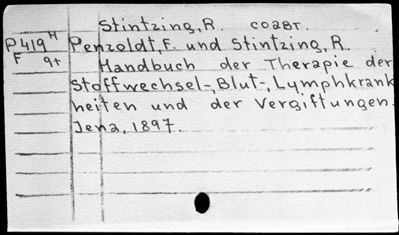 Stintzing, R. соавт.
P419H Penzoldt, F. und Stintzing, R.
F 9+ Handbuch der Therapie der
Stoffwechsel-, Blut-, Lymphkrank
heiten und der Vergiftungen.
Jena, 1897.